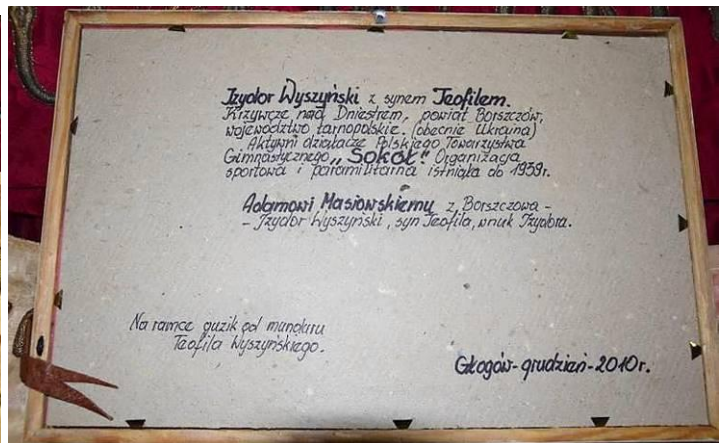 Izydor Wyszyński z synem Teofilem.
Krzywcze nad Dniestrem, powiat Borszczów,
województwo tarnopolskie. (obecnie Ukraina)
Aktywni działacze Polskiego Towarzystwa
Gimnastycznego „Sokół." Organizacja
sportowa i paramilitarna istniała do 1939r.
Adamowi Masiowskiemu z Borszczowa -
- Izydor Wyszyński, syn Teofila, wnuk Izydora.
Na ramce guzik od munduru
Teofila Wyszyńskiego.
Głogów-grudzień-2010r.